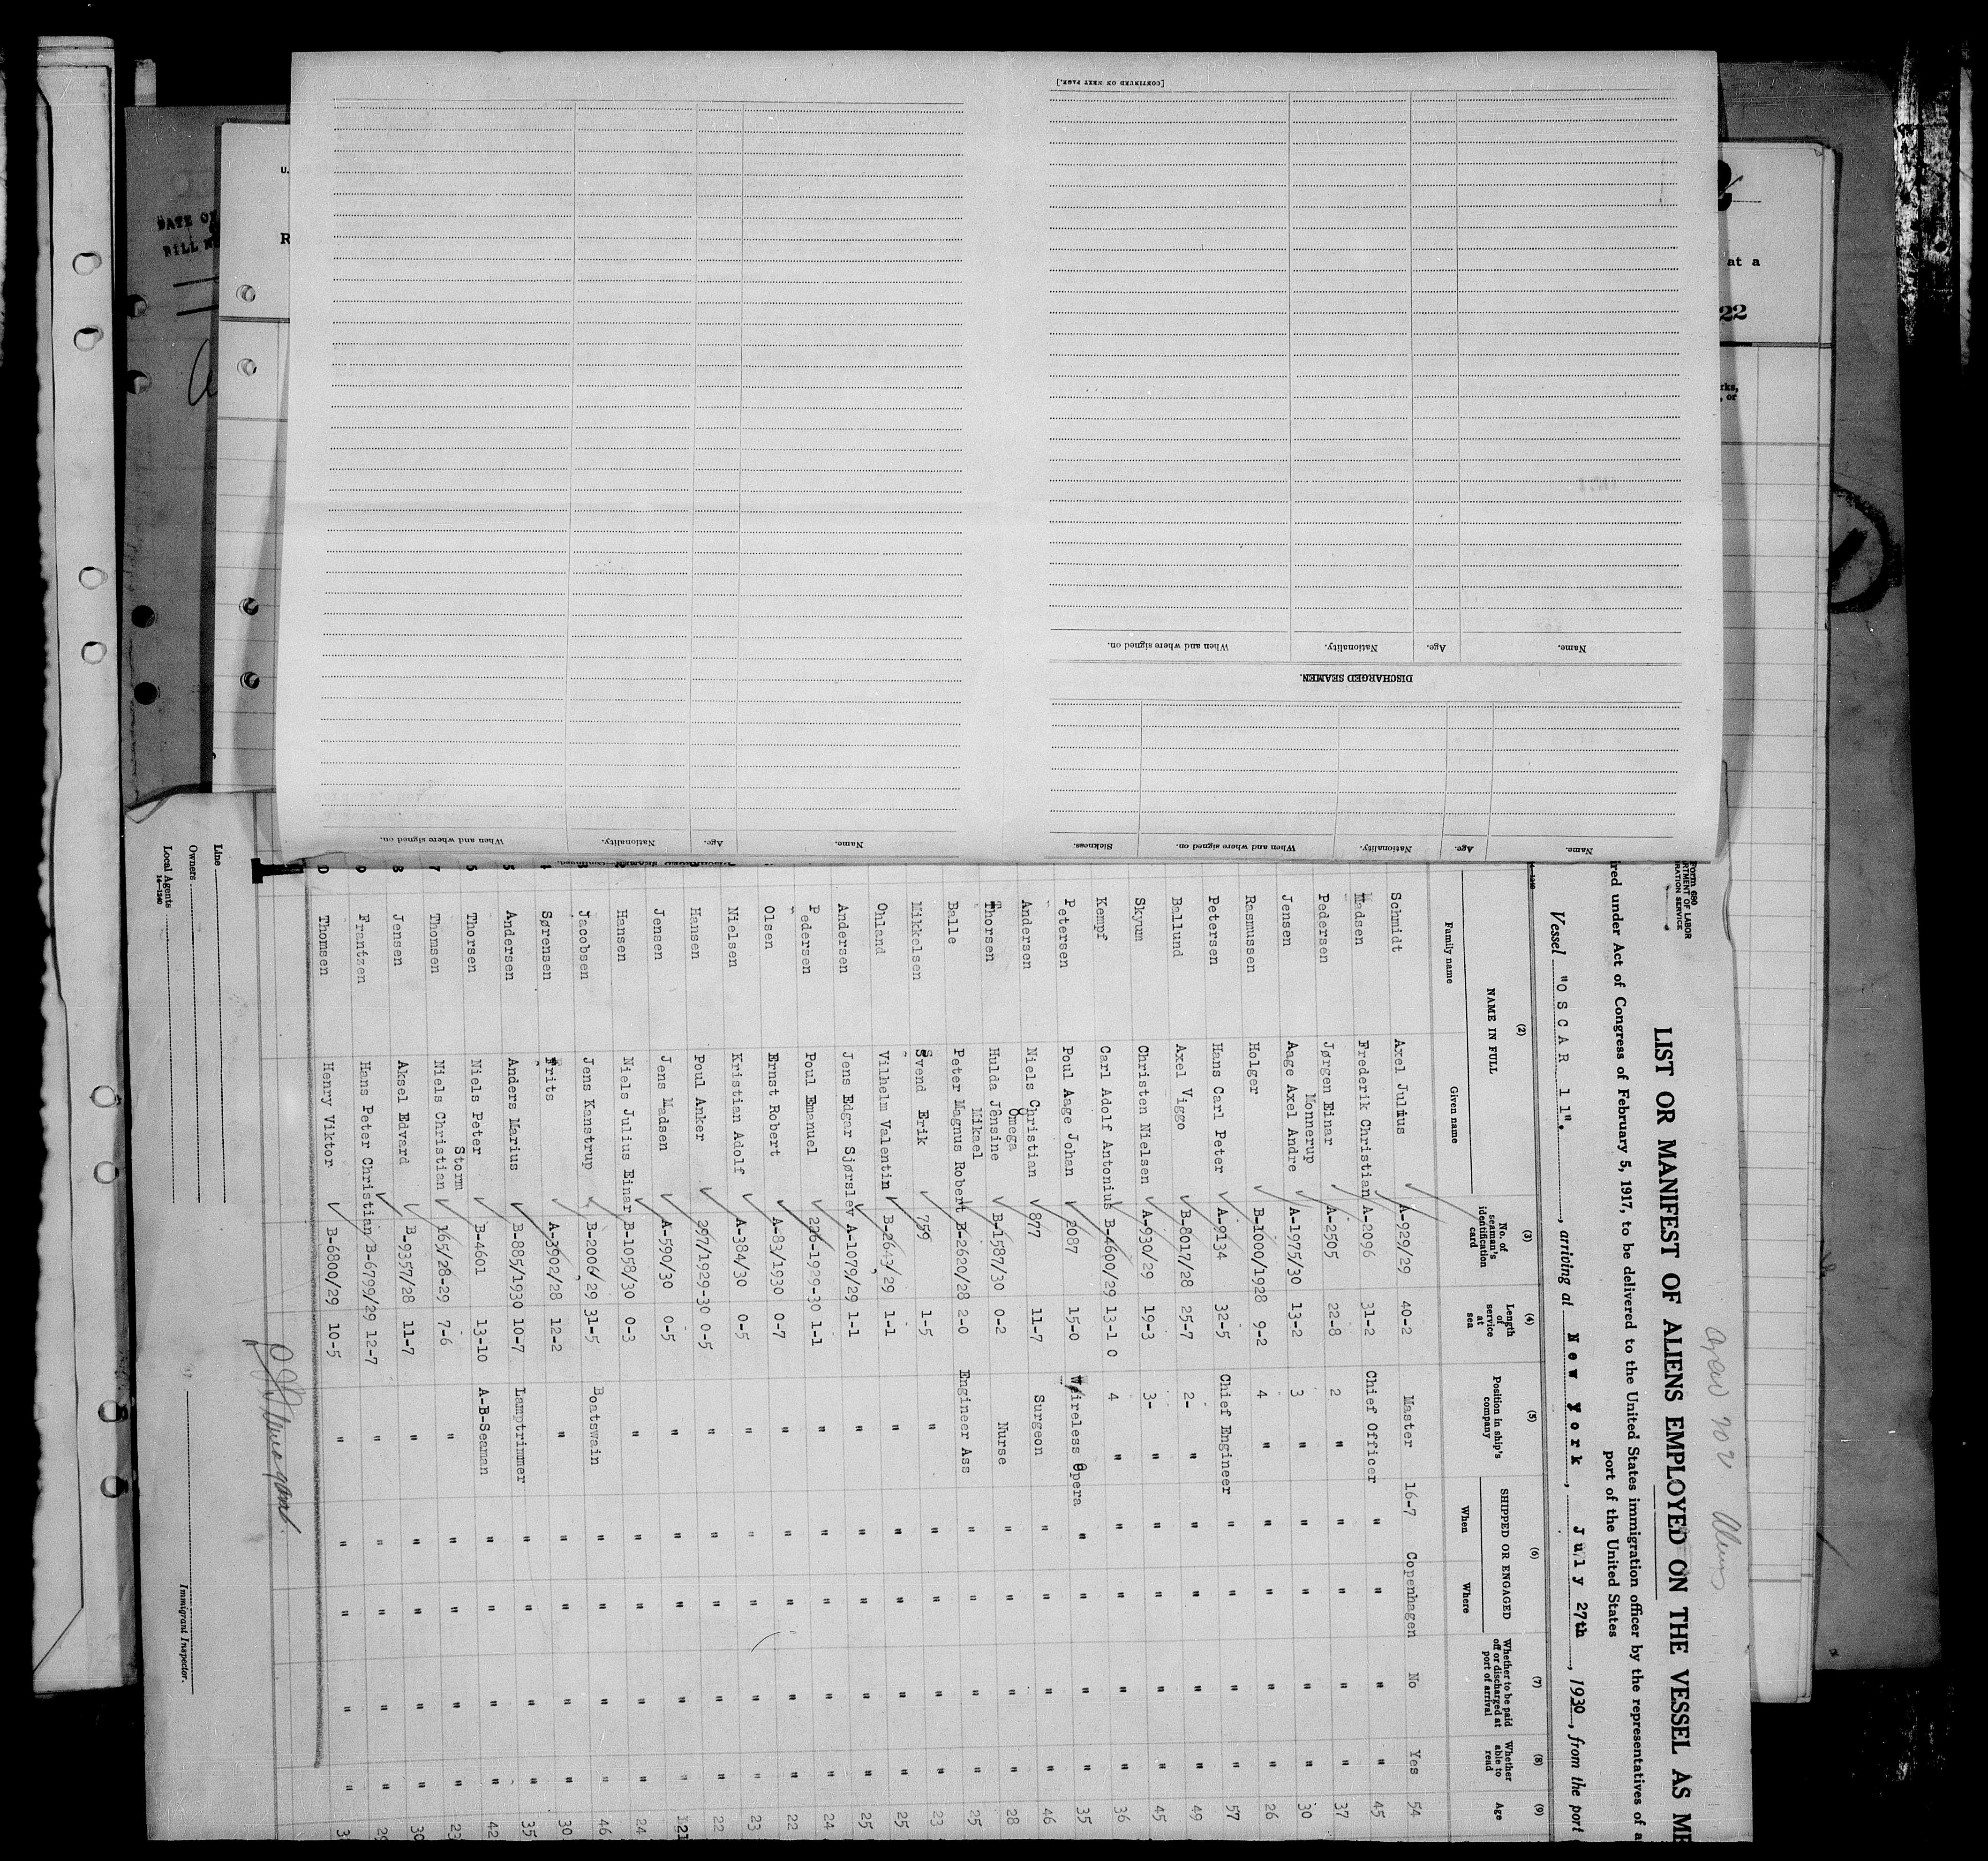 Form 680
LIST OR MANIFEST OF ALIENS EMPLOYED ON THE VESSEL AS
red under Act of Congress of February 5, 1917, to be delivered to the United States immigration officer by the representatives of
port of the United States
Vessel "OSCAR 11", arriving at New York, July 27th, 1930, from the port
(2) (3) (4) (5) (6) (7) (8) (9)
NAME IN FULL No. of seaman's identification card Length of service at sea Position in ship's company SHIPPED OR ENGAGED Whether to be paid off or discharged at port of arrival Whether able to read Age
Family name Given name When Where
Schmidt Axel Julius A-929/29 40-2 Master 16-7 Copenhagen No Yes 54
Madsen Frederik Christian A-2096 31-2 Chief Officer " " " " 45
Pedersen Jørgen Einar A-505 22-8 2 " " " " " 37
Monnerup
Jensen Aage Axel Andre A-1975/30 13-2 3 " " " " " 30
Rasmussen Holger B-1000/1928 9-2 4 " " " " " 26
Petersen Hans Carl Peter A-9134 32-5 Chief Engineer " " " " 57
Ballund Axel Viggo B-8017/28 25-7 2- " " " " " 49
Skyum Christen Nielsen A-930/29 19-3 3- " " " " " 45
Kempf Carl Adolf Antonius B-4600/29 13-10 4 " " " " " 36
Petersen Poul Aage Johan 2087 15-0 Wireless Opera " " " " 35
Andersen Niels Christian 877 11-7 Surgeon " " " " 46
Omega
Thorsen Hulda Jensine B-1587/30 0-2 Nurse " " " " 28
Mikael
Balle Peter Magnus Robert B-2620/28 2-0 Engineer Ass " " " " 25
Mikkelsen Svend Erik 759 1-5 " " " " " 23
Ohland Vilhelm Valentin B-2643/29 1-1 " " " " " 25
Andersen Jens Edgar Sjørslev A-1079/29 1-1 " " " " " 25
Pedersen Poul Emanuel 226-1929-30 1-1 " " " " " 24
Olsen Ernst Robert A-83/1930 0-7 " " " " " 22
Nielsen Kristian Adolf A-384/30 0-5 " " " " " 23
Hansen Poul Anker 297/1929-30 0-5 " " " " " 22
Jensen Jens Madsen A-590/30 0-5 " " " " " 21
Hansen Niels Julius Einar B-1058/30 0-3 " " " " " 24
Jacobsen Jens Kanstrup B-2006/29 31-5 Boatswain " " " " 46
Sørensen Frits A-3902/28 12-2 " " " " " 30
Andersen Anders Marius B-885/1930 10-7 Lamptrimmer " " " " 35
Thorsen Niels Peter B-4601 13-10 A-B-Seaman " " " " 42
Storm
Thomsen Niels Christian 165/28-29 7-6 " " " " " 23
Jensen Aksel Edvard B-9357/28 11-7 " " " " " 30
Frantzen Hans Peter Christian B-6799/29 12-7 " " " " " 29
Thomsen Henry Viktor B-6800/29 10-5 " " " " "
Line
Owners
Local Agents
14-1240
Immigrant Inspector.
[CONTINUED ON NEXT PAGE.]
Name. Age. Nationality. When and where signed on. Sickness.
DISCHARGED SEAMEN.
Name. Age. Nationality. When and where signed on.
Name. Age. Nationality. When and where signed on.
DATE OF
BILL
U.
R
at a
22
rks,
, or